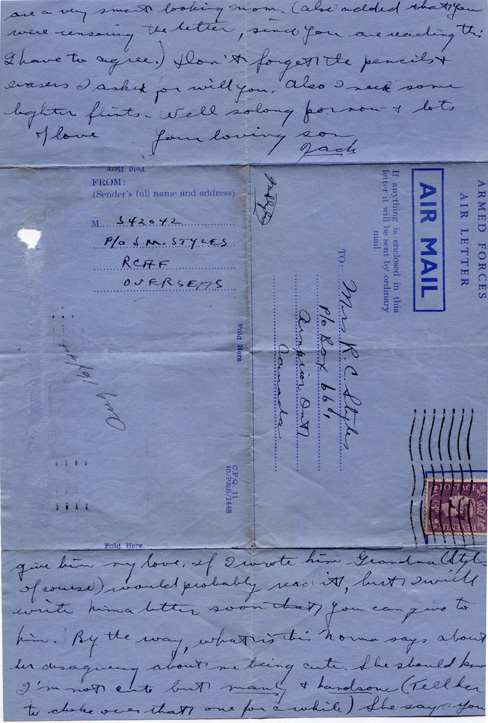 are a very smart looking mom. (also added that you
were censoring the letter, since you are reading this
I have to agree.) Don't forget the pencils &
erasers I asked for will you. Also I need some
lighter flints. Well so long for now & lots
of love Your loving son
Jack
Fold Here
FROM:
(Sender's full name and address)
M. J42042
P/O J.M. STYLES
RCAF
OVERSEAS
Fold Here
C.P.Q. 11
Fold Here
ARMED FORCES
AIR LETTER
AIR MAIL
If anything is enclosed in this
letter it will be sent by ordinary
mail.
TO:
Mrs R. C. Styles
P/o Box 661,
Arnprior Ont
Canada
POSTAGE
give him my love. If I wrote him Grandma (Styles
of course) would probably read it, but I will
write him a letter soon that you can give to
him. By the way, what is this Norma says about
her disagreeing about me being cute. She should know
I'm not cute but manly & handsome (Tell her
to choke over that one for a while) She says you